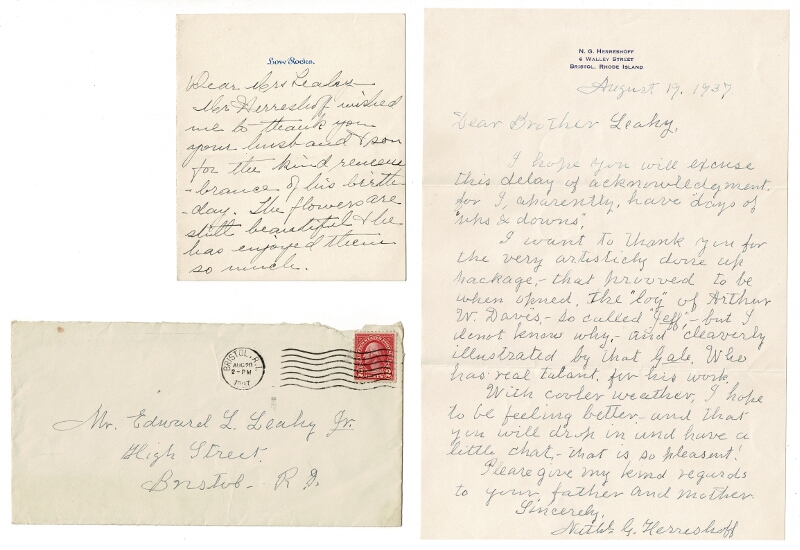 Love Rocks.
Dear Mrs Leahy
Mr Herreshoff wished
me to thank you
your husband & son
for the kind remem
-brance of his birth
-day. The flowers are
still beautiful & he
has enjoyed them
so much.
N. G. Herreshoff
6 Walley Street
Bristol, Rhode Island
August 19, 1937
Dear Brother Leahy,
I hope you will excuse
this delay of acknowledgment,
for I, aparently, have "days of
"ups & downs",
I want to thank you for
the very artisticly done up
package,- that prooved to be
when opned, the "log" of Arthur
W. Davis,- so called "Jeff",- but I
donot know why,- and cleaverly
illustrated by that Gale, Who
has real talant, for his work.
With cooler weather, I hope
to be feeling better- and that
you will drop in and have a
little chat,- that is so pleasent!
Please give my kind regards
to your, father and mother
Sincerely,
Nathl. G. Herreshoff
BRISTOL, R.I.
AUG 20
2-PM
1937
Mr. Edward L. Leahy Jr.
High Street.
Bristol- R I.